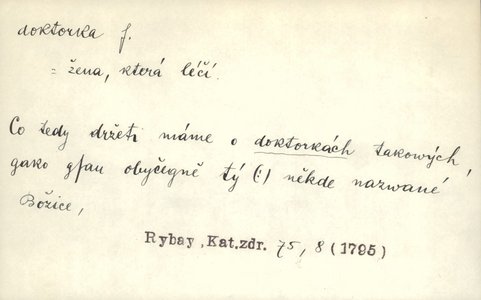 doktorka f.
= žena, která léčí.
Co tedy držeti máme o doktorkách takowých,
gako gsau obyčegně tý (!) někde nazwané
Božice,
Rybay, Kat.zdr. 75, 8 (1795)